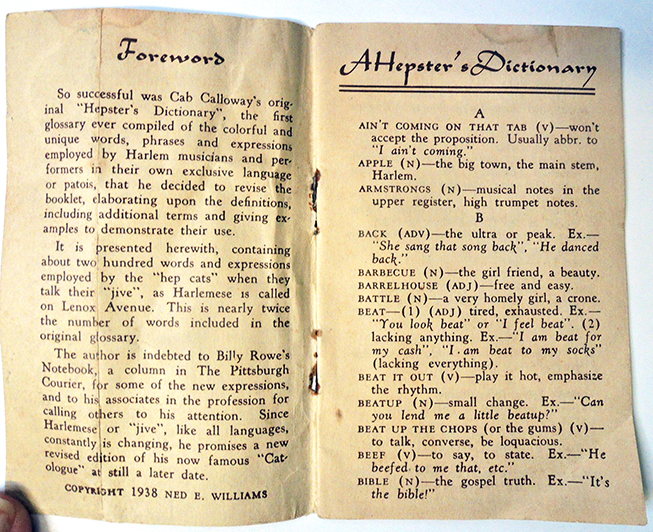 Foreword
So successful was Cab Calloway's orig-
inal "Hepster's Dictionary", the first
glossary ever compiled of the colorful and
unique words, phrases and expressions
employed by Harlem musicians and per-
formers in their own exclusive language
or patois, that he decided to revise the
booklet, elaborating upon the definitions,
including additional terms and giving ex-
amples to demonstrate their use.
It is presented herewith, containing
about two hundred words and expressions
employed by the "hep cats" when they
talk their "jive", as Harlemese is called
on Lenox Avenue. This is nearly twice
the number of words included in the
original glossary.
The author is indebted to Billy Rowe's
Notebook, a column in The Pittsburgh
Courier, for some of the new expressions,
and to his associates in the profession for
calling others to his attention. Since
Harlemese or "jive", like all languages,
constantly is changing, he promises a new
revised edition of his now famous "Cat-
ologue" at still a later date.
COPYRIGHT 1938 NED E. WILLIAMS
A Hepster's Dictionary
A
AIN'T COMING ON THAT TAB (V)—won't
accept the proposition. Usually abbr. to
"I ain't coming."
APPLE (N)—the big town, the main stem,
Harlem.
ARMSTRONGS (N)—musical notes in the
upper register, high trumpet notes.
B
BACK (ADV)—the ultra or peak. Ex.—
"She sang that song back", "He danced
back."
BARBECUE (N)—the girl friend, a beauty.
BARRELHOUSE (ADJ)—free and easy.
BATTLE (N)—a very homely girl, a crone.
BEAT—(1) (ADJ) tired, exhausted. Ex.—
"You look beat" or "I feel beat". (2)
lacking anything. Ex.—"I am beat for
my cash", "I am beat to my socks"
(lacking everything).
BEAT IT OUT (V)—play it hot, emphasize
the rhythm.
BEATUP (N)—small change. Ex.—"Can
you lend me a little beatup?"
BEAT UP THE CHOPS (or the gums) (V)—
to talk, converse, be loquacious.
BEEF (V)—to say, to state. Ex.—"He
beefed to me that, etc."
BIBLE (N)—the gospel truth. Ex.—"It's
the bible!"